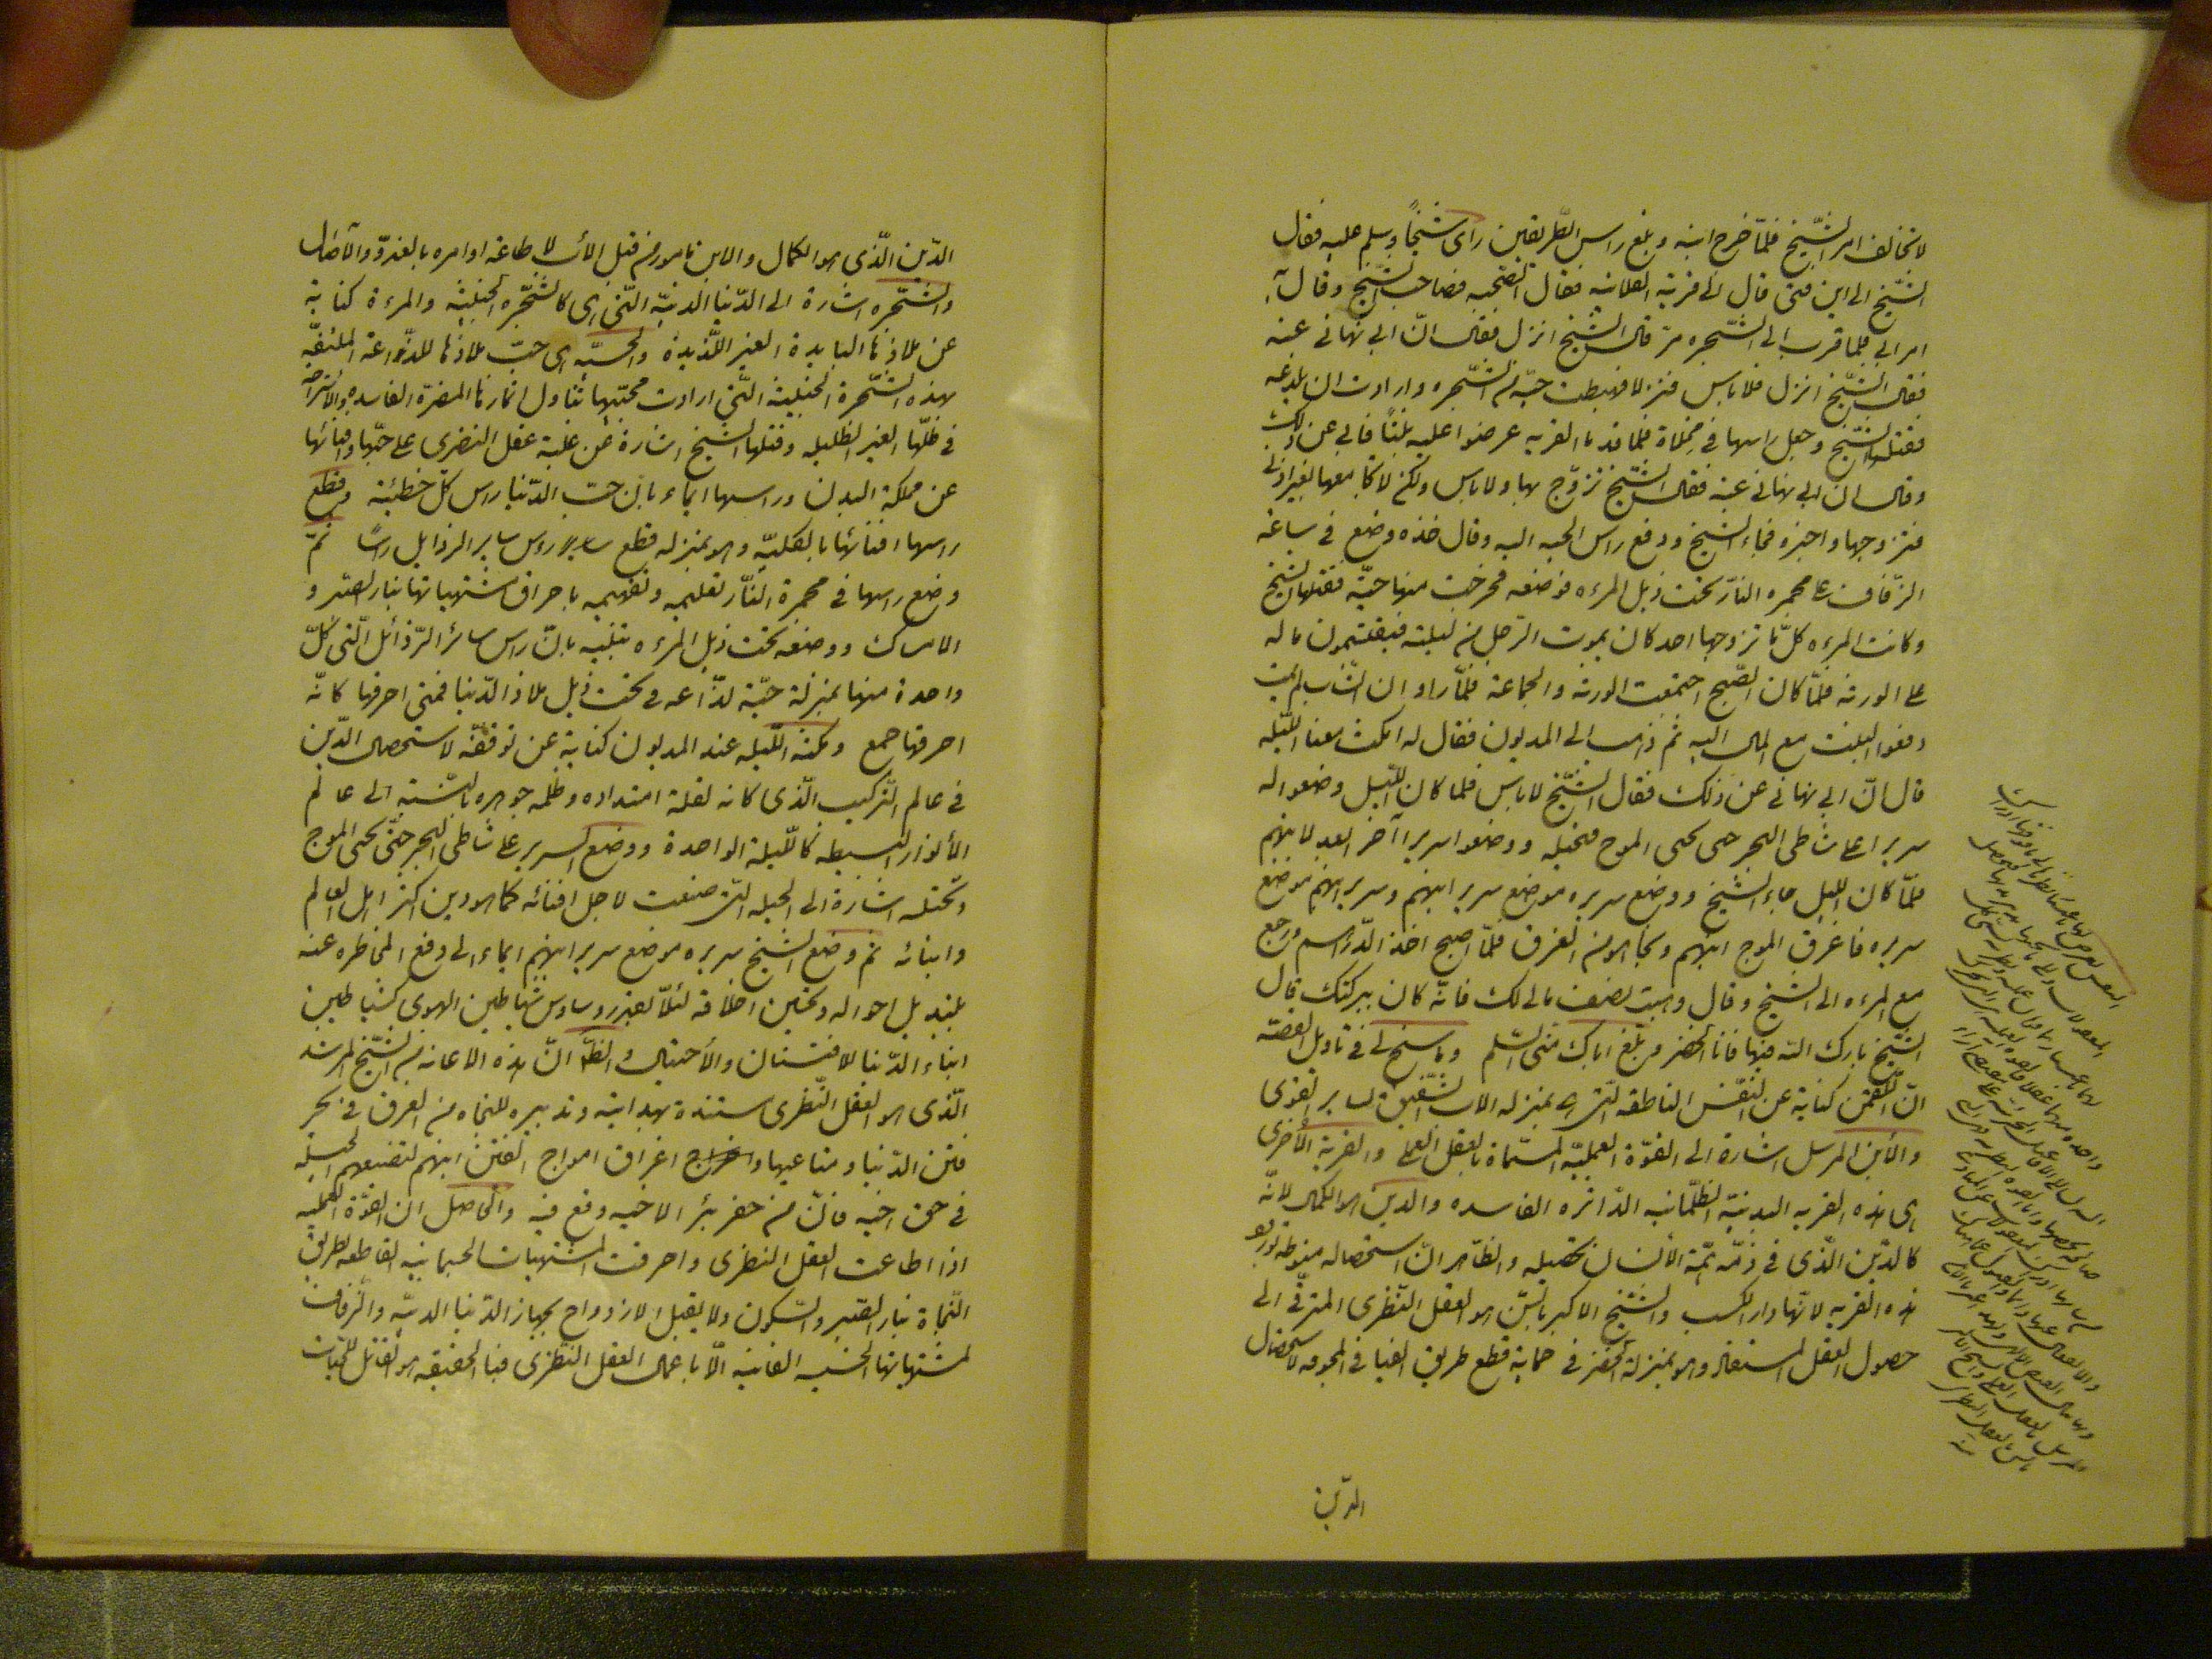 لا تخالف امر الشّيخ فلمّا خرج ابنه و بلغ راس الطّريقين رأى شيخاً وسلم عليه فقال
الشّيخ الى اين فتى قال الى قرية الفلانيه فقال الصّحبه فصاحب الشّيخ وقال
امر ابى فلما قرب الى الشّجره مرّ قال الشّيخ انزل فقال انّ ابى نهانى عنه
فقال الشّيخ انزل فلا باس فنزلا فهبطت حيّه من الشّجره وارادت ان يلدغه
فقتلها الشّيخ وجعل راسها فى مخلاة فلما قدما القريه عرضوا عليه بنتاً فابى عن ذلك
وقال ان ابى نهانى عنه فقال الشّيخ تزوّج بها ولا باس ولكن لا تجامعها بغير اذنى
فتزوجها واخبره فجاء الشّيخ ودفع راس الحيه اليه وقال خذه وضع فى ساعة
الزّفاف على مجمره النّار تحت ذيل المرءه فوضعه فخرجت منها حيّة فقتلها الشّيخ
وكانت المرءه كلّما تزوجها احد كان يموت الرّجل من ليلته فيقتسمون ماله
على الورثه فلمّا كان الصّبح اجتمعت الورثه والجماعة فلمّا راوا ان الشّاب لم يمت
دفعوا البنت مع المال اليه ثم ذهب الى المديون فقال له امكث معنا اللّيله
قال انّ ابى نهانى عن ذلك فقال الشّيخ لا باس فلما كان اللّيل وضعوا له
سريرا على شاطى البحر حتى يجئ الموج فتختله ووضعوا سريرا آخر لابنهم
فلمّا كان الليل جاء الشّيخ ووضع سريره موضع سرير ابنهم وسرير ابنهم موضع
سريره فاغرق الموج ابنهم ونجا هو من الغرق فلمّا اصبح اخذ الدّراهم ورجع
مع المرءه الى الشّيخ وقال وهبت نصف مالى لك فانّه كان ببركتك قال
الشّيخ بارك الله فيها فانا الخضر بلّغ اباك منّى السّلم وما سنح لى فى تاويل القصّه
انّ اللّقمن كناية عن النّفس الناطقه التى هى بمنزلة الاب الشّفيق لساير القوى
والابن المرسل اشارة الى القوّة العمليّه المسمّاة بالعقل العملى والقرية الأخرى
هى هذه القريه البدنيّة الظّلمانيه الدّاثره الفاسده والدين هو الكمال لانّه
كالدّين الّذى فى ذمّة همّة الانسان تحصيله والظّاهر انّ استحصاله منوط بورود
هذه القريه لانّها دار الكسب والشّيخ الاكبر بالسّن هو العقل النّظرى المترقّى الى
حصول العقل المستفاد وهو بمنزلة الخضر فى حماية قطع طريق الفيافى المخوفه لاستحصال
الدّين
الدّين الّذى هو الكمال والابن مامور من قبل الأب لاطاعة اوامره بالغدوّ والآصال
والشّجره اشارة الى الدّنيا الدنيّه الّتى هى كالشّجره الخبيثه والمرءة كناية
عن ملاذها البايدة الغير اللّذيذة والحيّه هى حبّ ملاذها للدّواعة الملتفّه
بهذه الشّجرة الخبيثه الّتى ارادت محبّتها تناول اثمارها المضرّة الفاسده والاستراحة
فى ظلّها الغير الظليله وقتلها الشّيخ اشارة عن غلبة عقل النضرى على حبّها وافنائها
عن مملكة البدن وراسها ايماء بانّ حبّ الدّنيا راس كلّ خطيئة وقطع
راسها افنائها بالكليّه وهو بمنزله قطع رؤس ساير الرذايل راسًا ثمّ
وضع راسها فى مجمرة النّار تعليمه وتفهيمه باحراق مشتهياتها بنار الصّبر و
الامساك ووضعه تحت ذيل المرءه تنبيه بانّ راس سائر الرّذائل الّتى كلّ
واحدة منها بمنزلة حيّة لدّاغه فى تحت ذيل ملاذ الدّنيا فمتى احرقها كانّه
احرقها جمع ومكثه اللّيله عند المديون كناية عن توقّفه لاستحصال الدّين
فى عالم التّركيب الّذى كانه لقلة امتداده وظلمه جوهره بالنّسبة الى عالم
الأنوار البسيطه كاللّيلة الواحدة ووضع السرير على شاطى البحر حتّى يجئ الموج
وتختله اشارة الى الحيله التى صنعت لاجل افنائه كما هو دين اكثر اهل العالم
وابنائه ثم وضع الشّيخ سريره موضع سرير ابنهم ايماء الى دفع المخاطره عنه
بتبديل احواله وتحسين اخلاقه لئلّا يغتر وساوس شياطين الهوى كشياطين
ابناء الدّنيا للافتتنان والأحتيال والظّ انّ هذه الاعانه من الشّيخ المرشد
الّذى هو العقل النّظرى مستندة بهدايته وتدبيره للنجاه من الغرق فى بحر
فتن الدّنيا ومتاعبها واغراق امواج الفتن ابنهم لتضيعهم الحيله
فى حق اخيه فانّ من حفر بئر الاخيه وقع فيه والحاصل ان القوّة العمليه
اذا اطاعت العقل النظرى واحرقت المشتهيات الجسمانيه القاطعه لطريق
النّجاة بنار الصّبر والسّكون ولا يقبل الازدواج بجهاز الدّنيا الدنيّه والزّفاف
لمشتهياتها الخسيه الفانيه الّا باعمال العقل النّظرى فبالحقيقه هو القاتل للحيّات